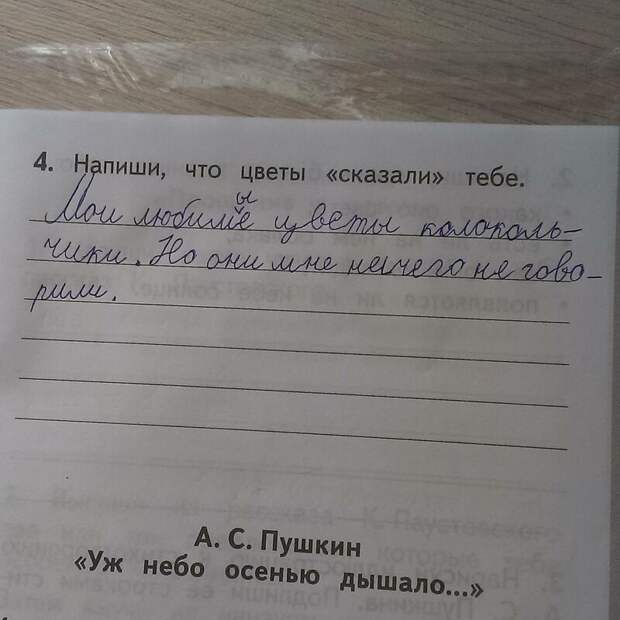 4. Напиши, что цветы «сказали» тебе.
ы
Мои любиме цветы колоколь-
чики. Но они мне нечего не гово-
рили.
А. С. Пушкин
«Уж небо осенью дышало...»